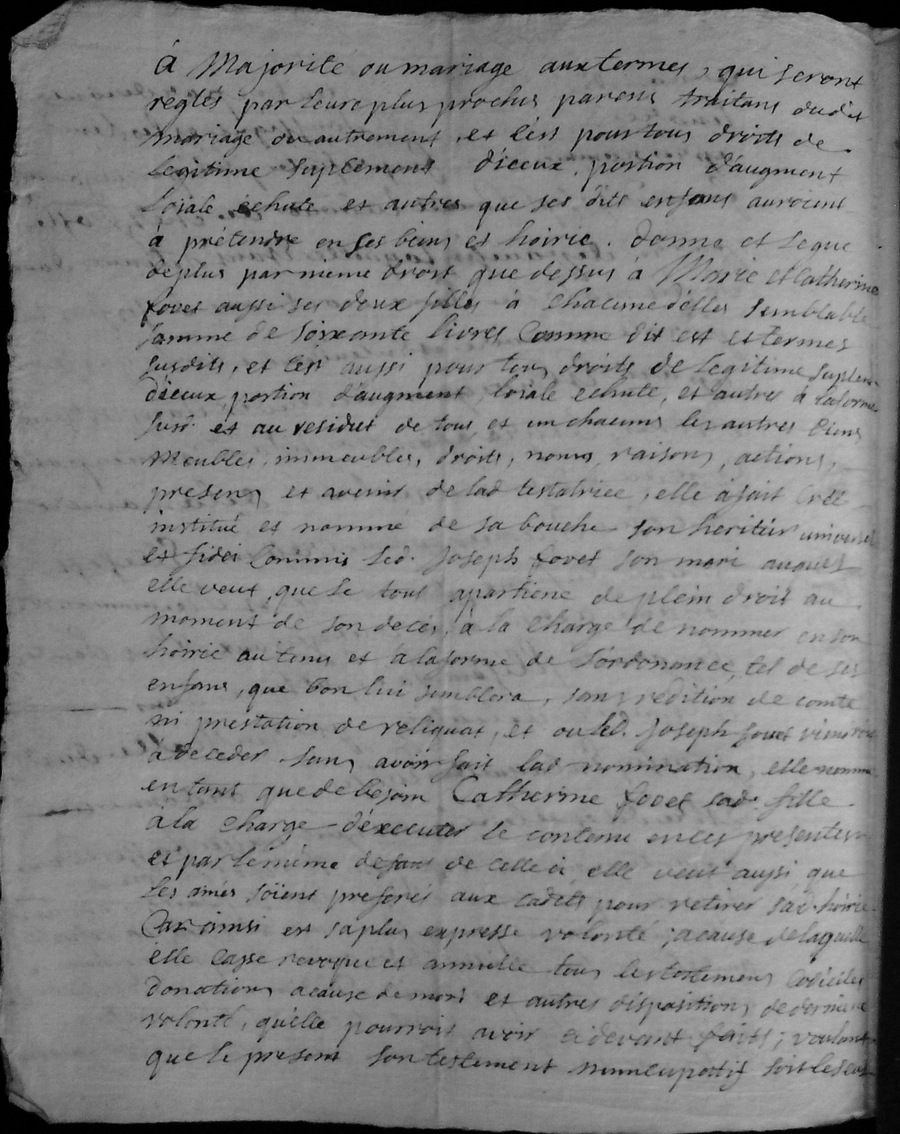 á Majorité ou mariage aux termes, qui seront
reglés par leurs plus proches parens traitans dudit
mariage ou autrement, et c'ést pour tous droits de
legitime suplement d'iceux, portion d'augment
loiale échute et autres que ses dits enfans auroient
à prétendre en ses biens et hoirie. donne et legue
de plus par même droit que dessus à Marie et Catherine
fovet aussi ses deux filles à chacune d'élles semblable
somme de soixante livres Comme dit est et termes
susdits, et c'est aussi pour tous droits de legitime suplem.
d'iceux, portion d'augment, loiale echute, et autres à la forme
susd. et au residut de tous et un chacuns les autres biens
Meubles, immeubles, droits, noms, raisons, actions,
presens et avenir de lad testatrice, elle à fait Creé
institué et nommé de sa bouche son heritier universel
et fidei Commis led. Joseph fovet son mari auquel
elle veut, que le tout apartiene de plein droit au
moment de son decés, à la Charge de nommer en son
hoirie au tems et a la forme de l'ordonance, tel de ses
enfans, que bon lui semblera, sans redition de comte
ni prestation de reliquat, et ou led. Joseph fovet viendroit
a deceder sans avoir fait lad nomination, elle nomme
en tant que de besoin Catherine fovet sad. fille
à la charge d'éxecuter le contenu en ces presentes
et par le même defaut de celle ci elle veut aussi que
les ainés soient preferés aux cadets pour retirer sad. hoirie
Car ainsi est sa plus expresse volonté; a cause de laquelle
élle casse revoque et annulle tous les testemens Codiciles
donations a cause de mort et autres dispositions de derniere
volonté, qu'élle pourroit avoir ci devant faits; voulant
que le present son testement nuncupatif soit le seul